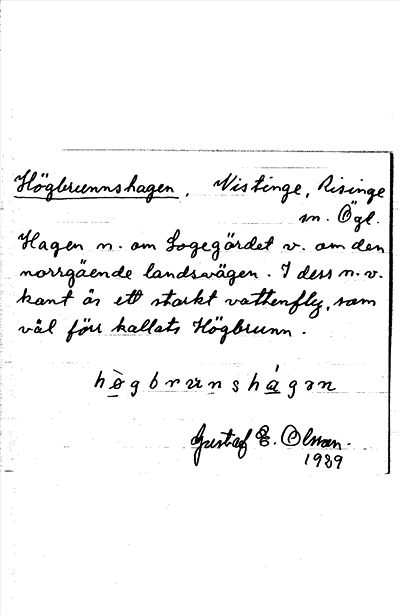 Högbrunnshagen. Vistinge, Risinge
sn. Ögl.
Hagen n. om Logegärdet v. om den
norrgående landsvägen. I dess n.v.
kant är ett starkt vattenflg, som
väl förr kallats Högbrunn.
hø̀gbrunshágən
Gustaf E. Olsson.
1989